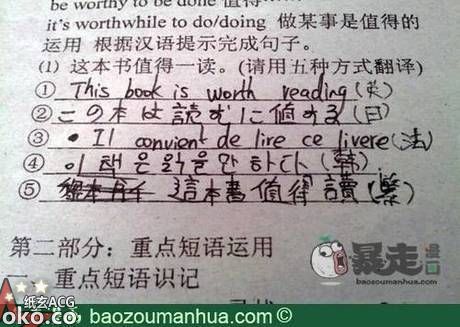 be worthy to be done 值得
it's worthwhile to do/doing 做某事是值得的
运用 根据汉语提示完成句子。
(1) 这本书值得一读。(请用五种方式翻译)
① This book is worth reading (英)
② この本は読むに値する (日)
③ • Il convient de lire ce livere (法)
④ 이 책은 읽을 만하다 (韩)
⑤ 這本書值得讀 (繁)
第二部分：重点短语运用
一、重点短语识记
暴走漫画
baozoumanhua.com
纸玄ACG
oko.co
baozoumanhua.com